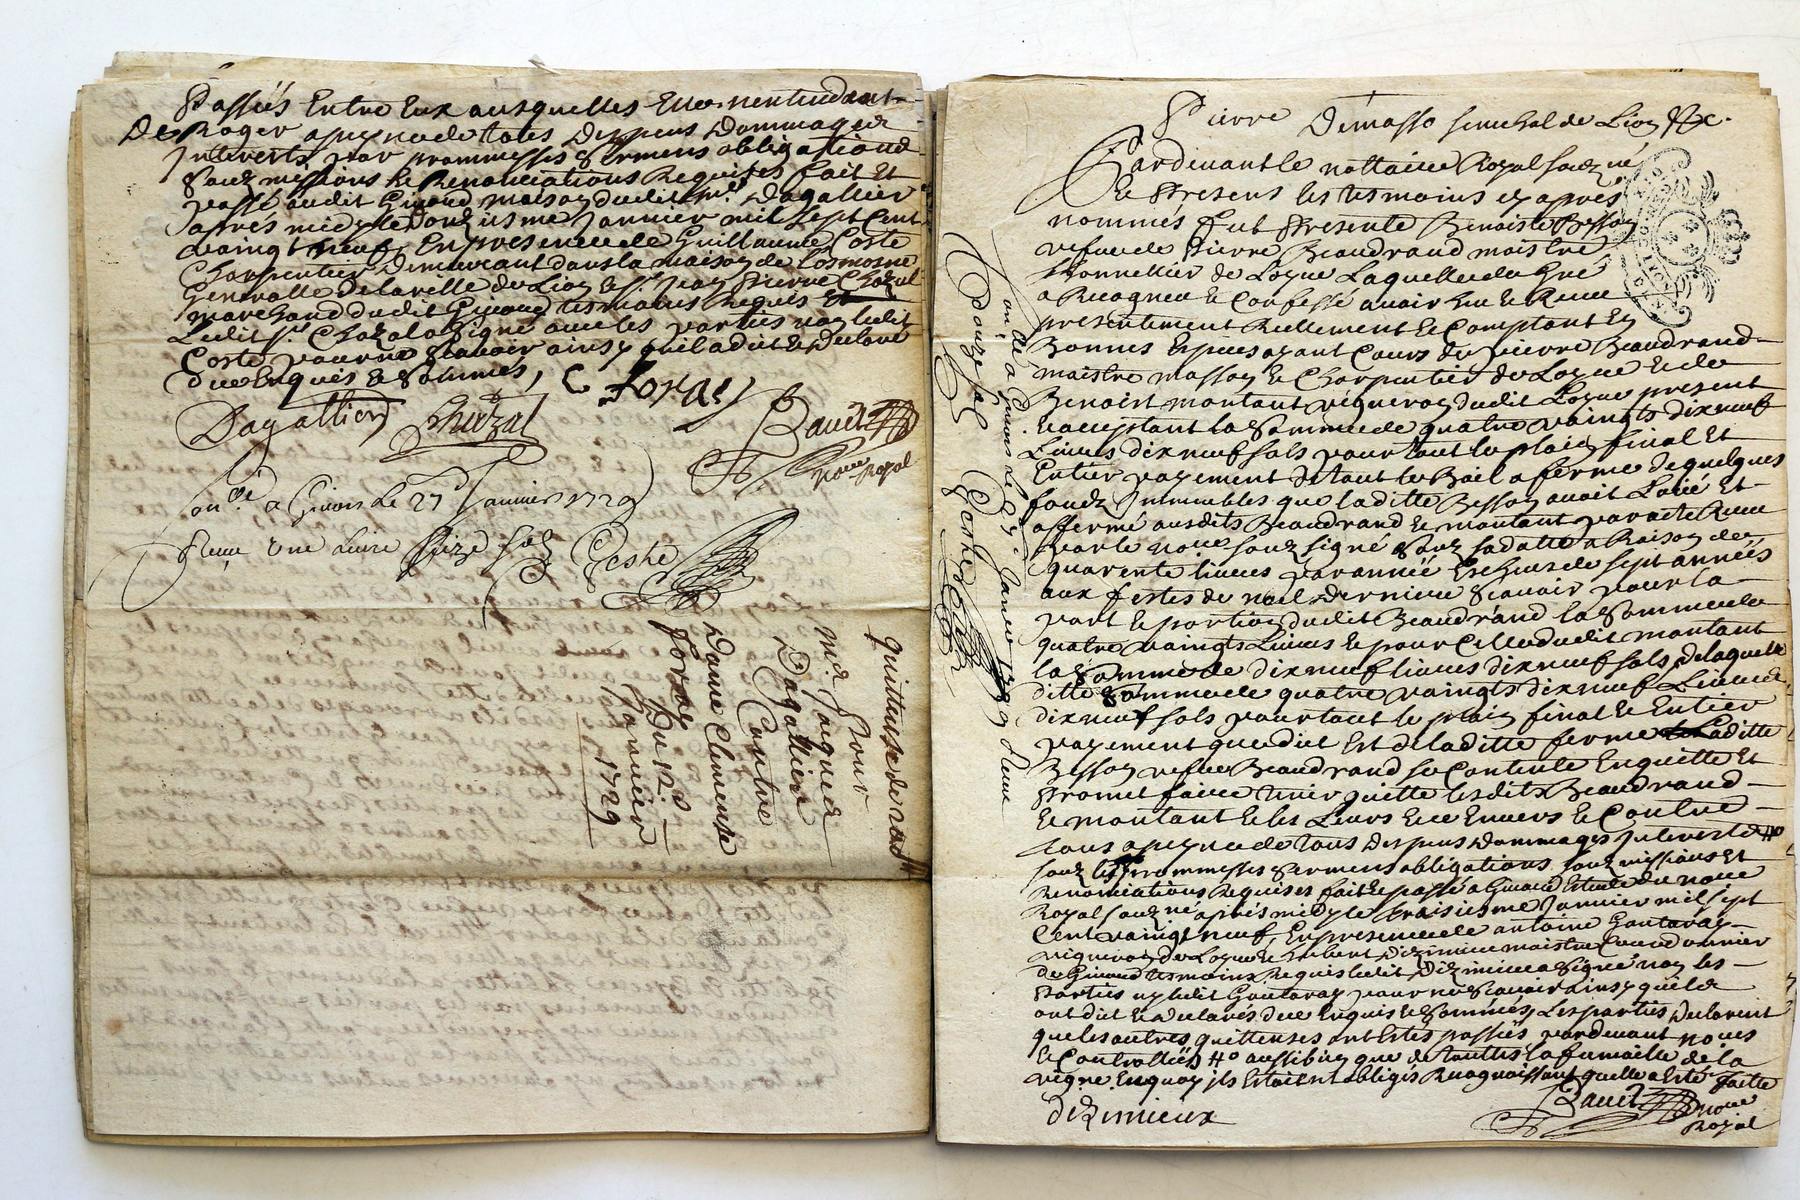 Passées Entre Eux ausquelles Elle nentend
De Roger a peyne de totes Despens Dommages
Interests par prommesses sermens obligations
Souzmissions & Renonciations Requises fait Et
passé audit Givord maison dudit Mr Dagallier
après midy le Douziesme Janvier mil sept Cent
vaingt neuf, En presence de Guillaume Coste
Charpentier Demeurant dans la maison de Losmosne
Generalle de la ville de Lion & Sr Jean Pierre Chazal
marchand dudit Givord tesmoins Requis Et
Ledit Sr Chazal a signé avec les parties non ledit
Coste pour ne scavoir ainsy qu'il a dit & declaré
de ce Enquis & sommés, C foras
Dagallier Chazal Ravet
nore Royal
Conlé a Givors le 27e Janvier 1729
Reçu Une livre seize sols Geshe
quittuse de
Pour
Mre Jaques
Dagalier
Contre
Dame Clemense
foras
Du 12e
Janvier
1729
Pierre Demasso senechal de Lion &c.
Pardevant le nottaire Royal souzné
Et Presens les tesmoins cy après
nommés fut Presente Benoiste Besson
vefue de Pierre Beaudrand maistre
Thonnellier de Loyre Laquelle de Gré
a Recogneu & Confessé avoir heu & Receu
presentement Reellement & Comptant En
Bonnes Espices ayant Cours de Pierre Beaudrand
maistre masson & Charpentier de Loyre & de
Benoist montant vigneron dudit Loyre present
& acceptant la somme de quatre vaingts dix neuf
Livres dix neuf sols pour tout le plain final Et
Entier payement de tout le Bail a ferme de quelques
fondz Immeubles que laditte Besson avoit Loüé Et
affermé ausdits Beaudrand & montant par acte Receu
par le nore souzsigné souz sa datte a Raison de
quarente livres par année Escheus de sept années
aux festes de noel dernier scavoir pour la
part & portion dudit Beaudrand la somme de
quatre vaingts Livres & pour Celle dudit montant
la somme de dix neuf livres dix neuf sols de laquelle
ditte somme de quatre vaingts dix neuf Livres
dix neuf sols pour tout le plain final & Entier
payement que dict Est de laditte ferme Laditte
Besson vefue Beaudrand se Contente Enquitte Et
Promet faire tenir quitte lesdits Beaudrand
& montant & les Leurs Envers & Contre
tous a peyne de tous despens dommages Interests #
souz les prommesses sermens obligations souzmissions Et
Renonciations Requises fait & passé a Givord Estude du nore
Royal souzné après midy le troisiesme Janvier mil sept
Cent vaingt neuf, En presence de antoine Goutaray
vigneron de Loyre & maistre
de Givord tesmoins Requis ledit Dezimieux a signé non les
Parties ny ledit Goutaray pour ne scavoir ainsy qu'ils
ont dit & declarés de ce Enquis & sommés, Les parties declarent
que les autres quittenses ont Estés passées pardevant nores
& Controllées # aussi bien que de touttes la fumaille de la
vigne Enquoy ils Estoient obligés Recognoissant quelle a Esté faitte
dezimieux Ravet nore
Royal
Conlé a Givors le Janvier 1729 Receu
Douze sols Geshe